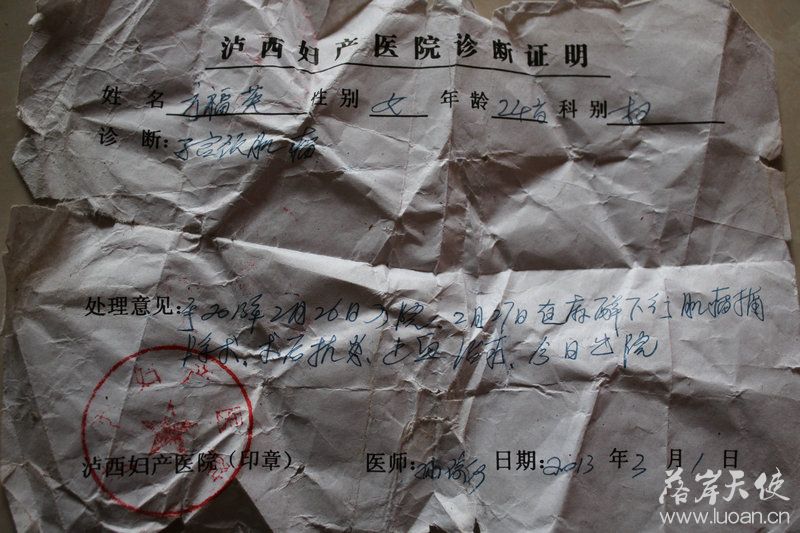 泸西妇产医院诊断证明
姓名 方福英 性别 女 年龄 24岁 科别 妇
诊断: 子宫肌瘤
处理意见: 于2013年2月26日入院、2月27日在麻醉下行肌瘤摘
除术、术后抗炎、止血治疗、今日出院
泸西妇产医院(印章) 医师: 日期: 2013年3月1日
落岸天使
www.luoan.cn